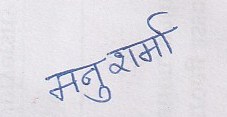 मनु शर्मा